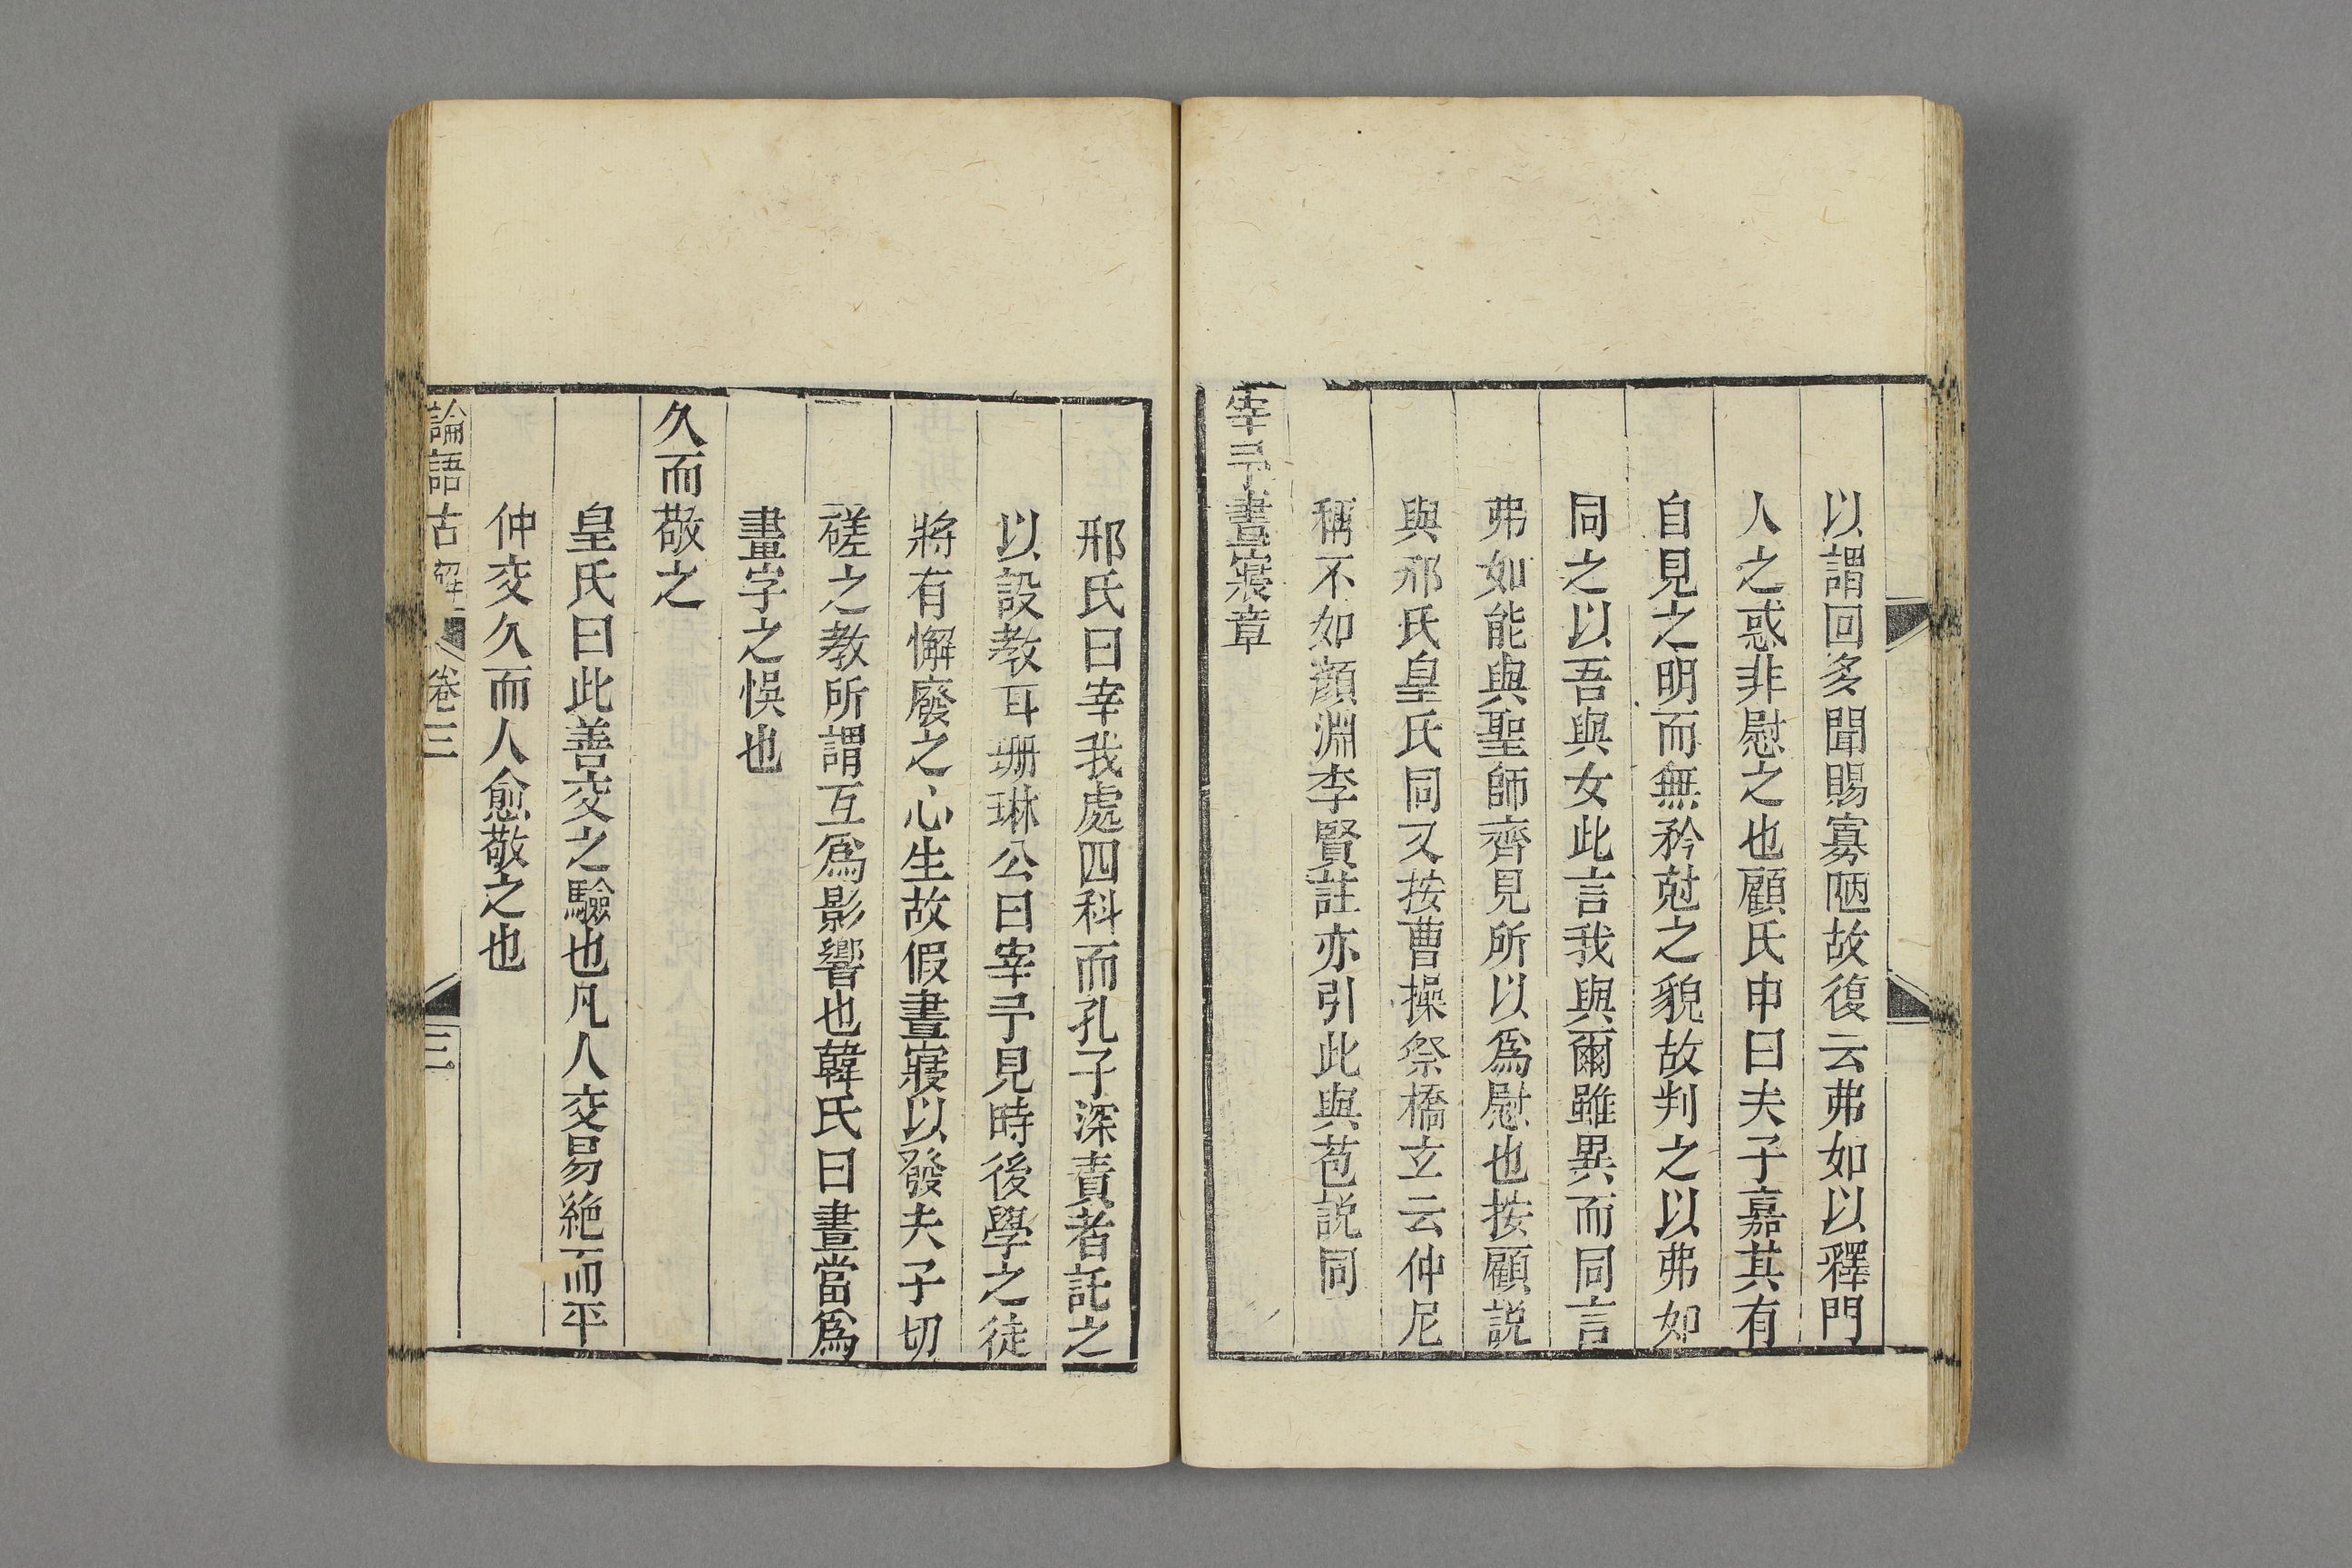 以謂回多聞賜寡陋故復云弗如以釋門
人之惑非慰之也顧氏申曰夫子嘉其有
自見之明而無矜尅之貌故判之以弗如
同之以吾與女此言我與爾雖異而同言
弗如能與聖師齊見所以爲慰也按顧説
與邢氏皇氏同又按曹操祭橋玄云仲尼
稱不如顔淵李賢註亦引此與苞説同
宰予晝寢章
邢氏曰宰我處四科而孔子深責者託之
以設教耳珊琳公曰宰予見時後學之徒
將有懈廢之心生故假晝寢以發夫子切
磋之教所謂互爲影響也韓氏曰晝當爲
畫字之悞也
久而敬之
皇氏曰此善交之驗也凡人交易絶而平
仲交久而人愈敬之也
論語古解 卷三 三